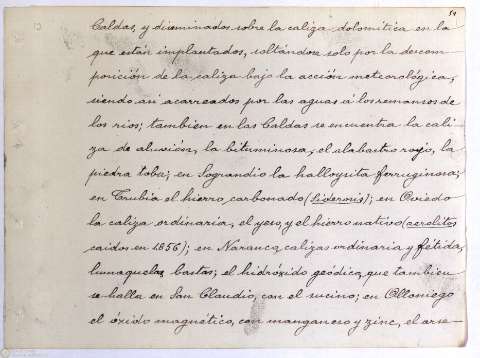 51
Caldas, y diseminados sobre la caliza dolomítica en la
que están implantados, soltándose solo por la descom-
posición de la caliza bajo la acción meteorológica,
siendo asi acarreados por las aguas á los remansos de
los rios; tambien en las Caldas se encuentra la cali-
za de aluvión, la bituminosa, el alabastro rojo, la
piedra toba; en Sograndio la halloysita ferruginosa;
en Trubia el hierro carbonado (siderosis); en Oviedo
la caliza ordinaria, el yeso, y el hierro nativo (aerolitos
caidos en 1856); en Naranco, calizas ordinaria y fétida,
lumaquelas bastas; el hidróxido geódico, que tambien
se halla en San Claudio, con el sucino; en Olloniego
el óxido magnético, con manganeso y zinc, el arse-